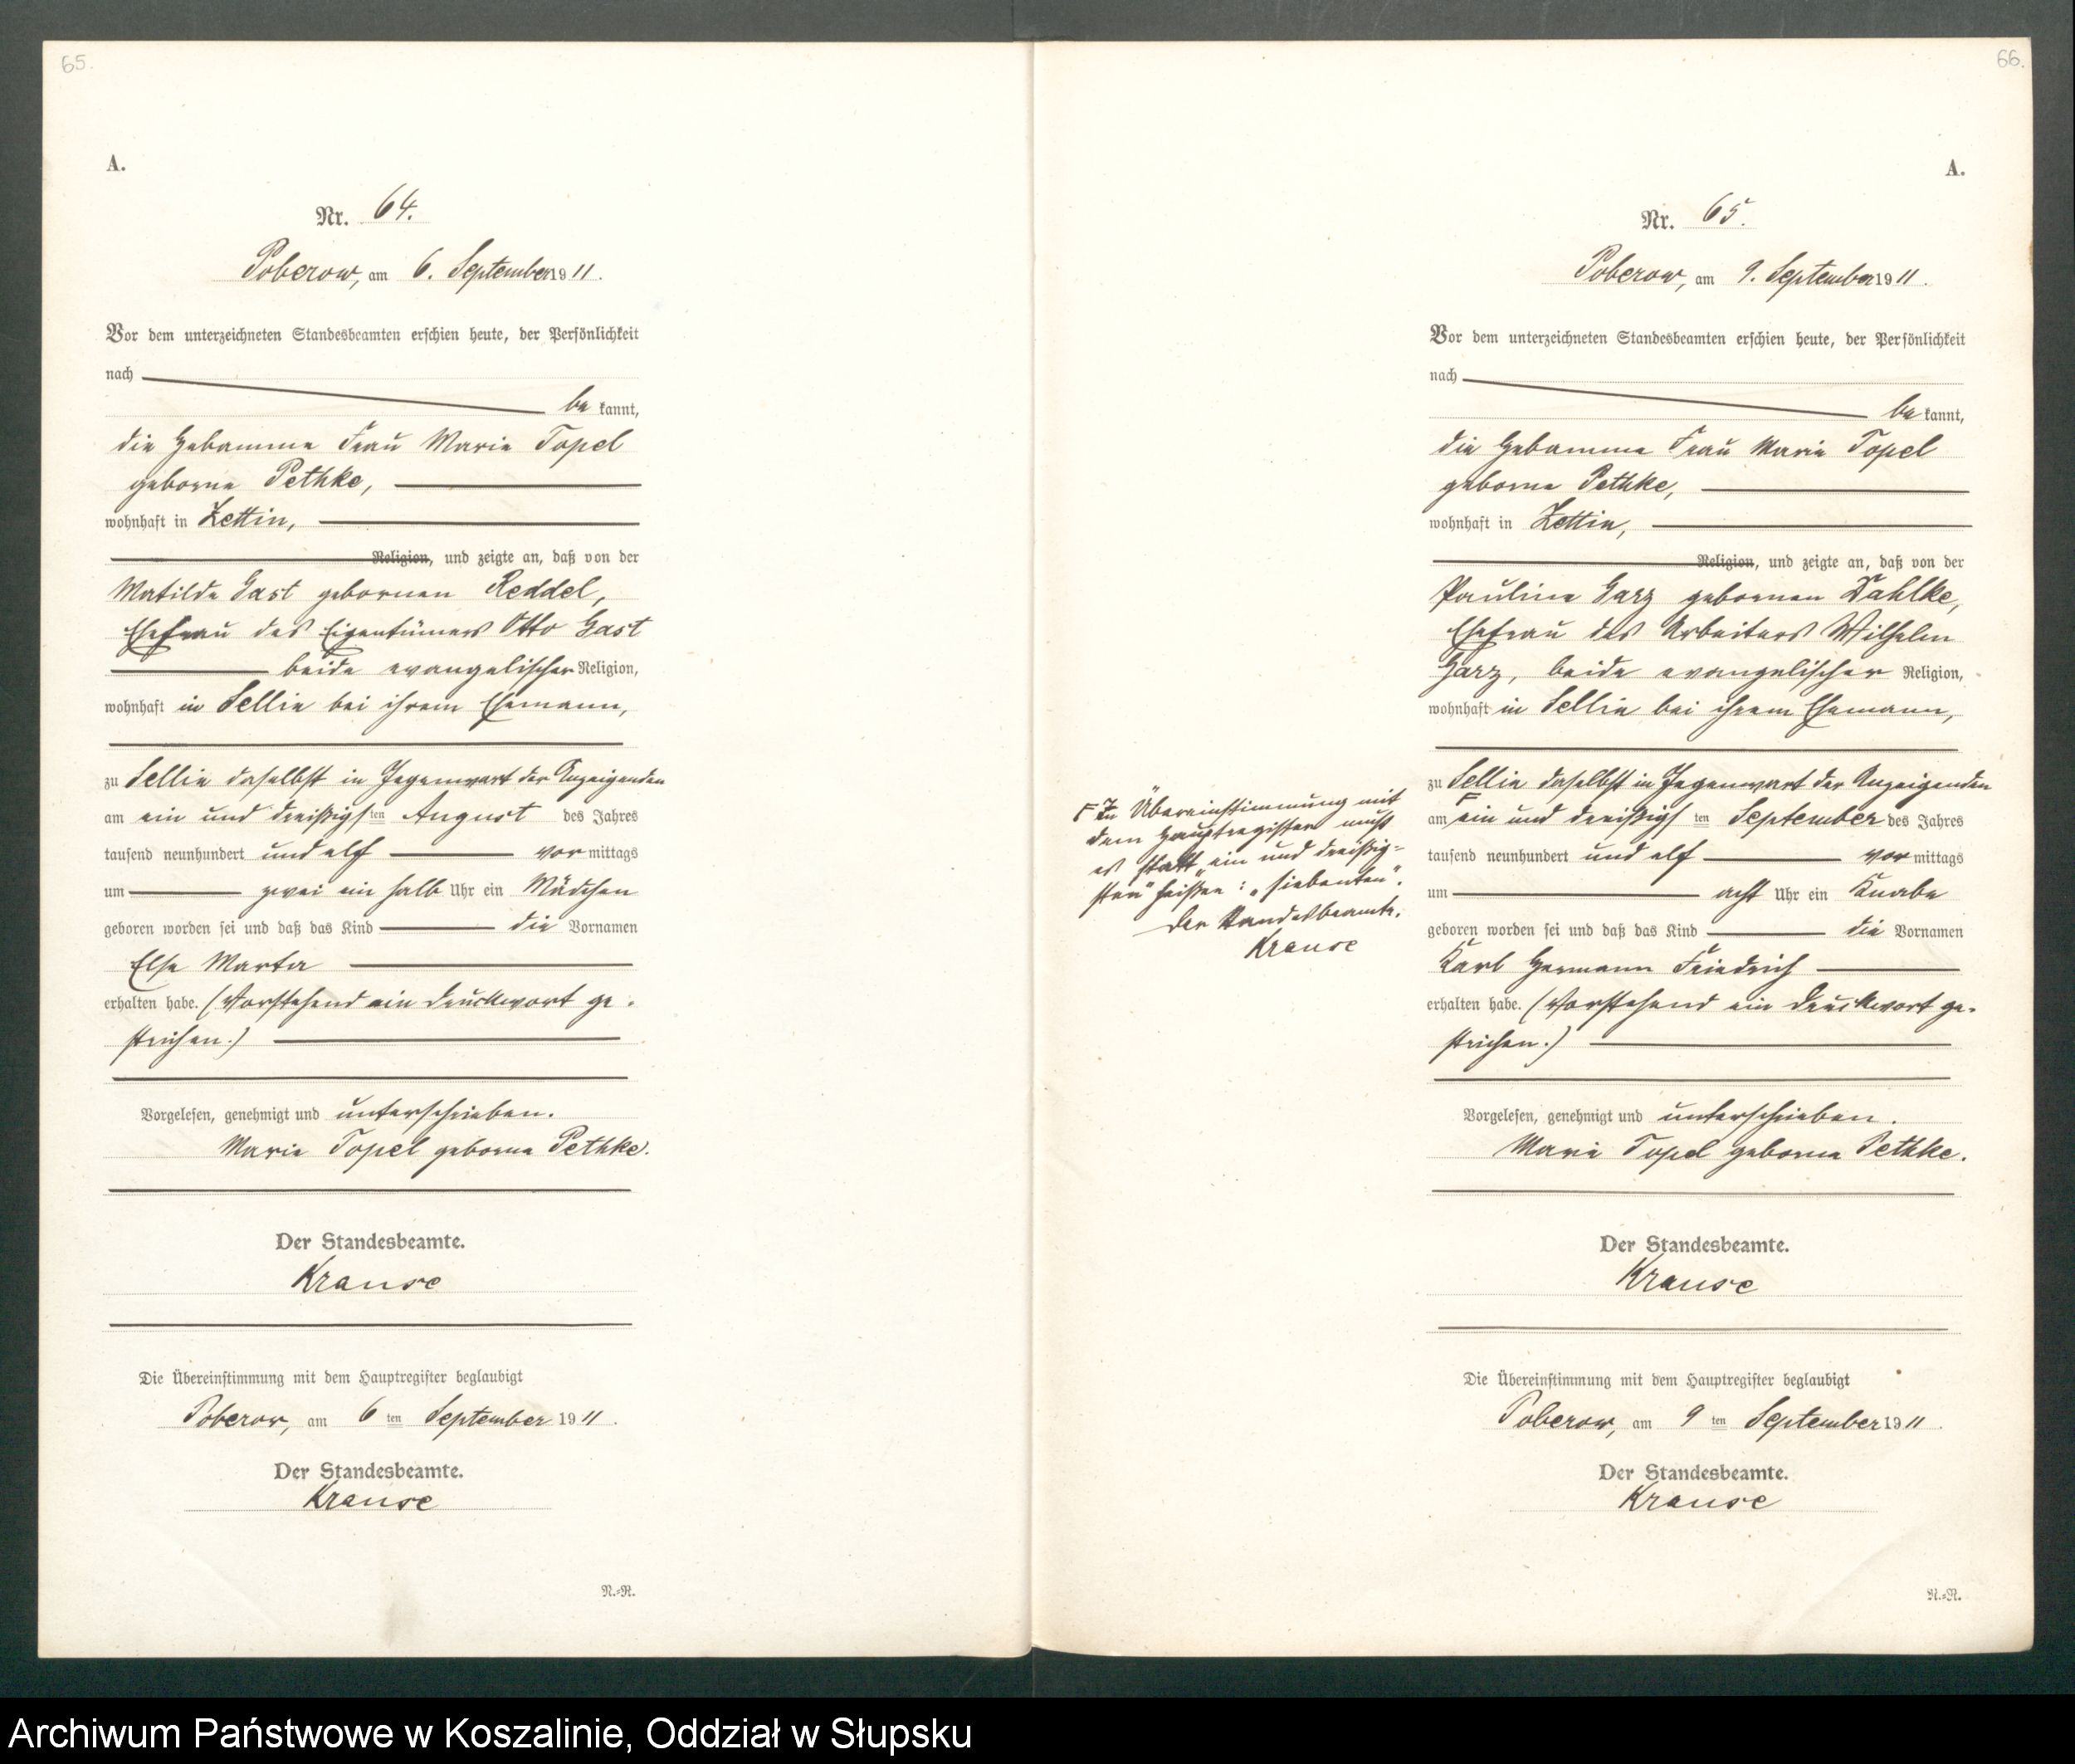 65.
A.
Nr. 64.
Poberow, am 6. September 1911.
Vor dem unterzeichneten Standesbeamten erschien heute, der Persönlichkeit
nach
be kannt,
die Hebamme Frau Marie Topel
geborne Pethke,
wohnhaft in Zettin,
Religion, und zeigte an, daß von der
Matilde Gast gebornen Reddel,
Ehefrau des Eigentümers Otto Gast
beide evangelischer Religion,
wohnhaft in Sellin bei ihrem Ehemann,
zu Sellin daselbst in Gegenwart der Anzeigenden
am ein und dreißigsten August des Jahres
tausend neunhundert und elf vormittags
um zwei ein halb Uhr ein Mädchen
geboren worden sei und daß das Kind die Vornamen
Else Marta
erhalten habe. (Vorstehend ein Druckwort ge-
strichen.)
Vorgelesen, genehmigt und unterschrieben.
Marie Topel geborne Pethke.
Der Standesbeamte.
Krause
Die Übereinstimmung mit dem Hauptregister beglaubigt
Poberow, am 6ten September 1911.
Der Standesbeamte.
Krause
N.=R.
66.
A.
Nr. 65.
Poberow, am 9. September 1911.
Vor dem unterzeichneten Standesbeamten erschien heute, der Persönlichkeit
nach
be kannt,
die Hebamme Frau Marie Topel
geborne Pethke,
wohnhaft in Zettin,
Religion, und zeigte an, daß von der
Pauline Garz gebornen Dahlke,
Ehefrau des Arbeiters Wilhelm
Garz, beide evangelischer Religion,
wohnhaft in Sellin bei ihrem Ehemann,
zu Sellin daselbst in Gegenwart der Anzeigenden
am ein und dreißigsten September des Jahres
tausend neunhundert und elf vormittags
um acht Uhr ein Knabe
geboren worden sei und daß das Kind die Vornamen
Karl Hermann Friedrich
erhalten habe. (Vorstehend ein Druckwort ge-
strichen.)
Vorgelesen, genehmigt und unterschrieben.
Marie Topel geborne Pethke.
Der Standesbeamte.
Krause
Die Übereinstimmung mit dem Hauptregister beglaubigt
Poberow, am 9ten September 1911.
Der Standesbeamte.
Krause
N.=R.
In Übereinstimmung mit
dem Hauptregister muß
es statt „ein und dreißig-
sten" heißen: „siebenten".
Der Standesbeamte.
Krause
Archiwum Państwowe w Koszalinie, Oddział w Słupsku